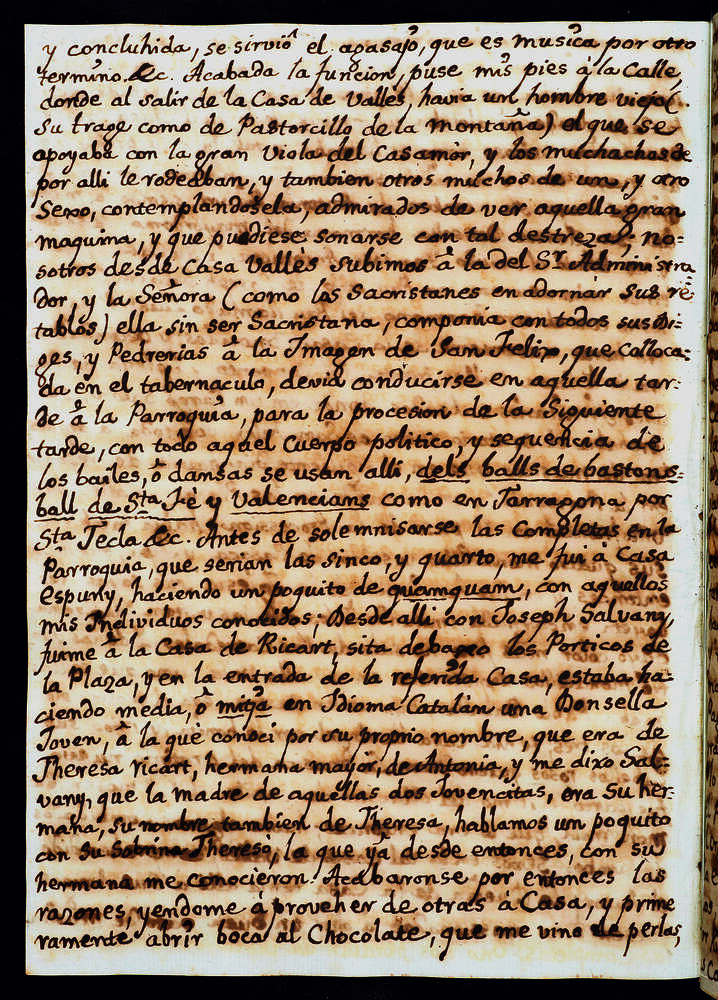 y concluhida, se sirviô el agasajo, que es musica por otro
termino &c. Acabada la funcion, puse mis pies à la Calle,
donde al salir de la Casa de Vallès, havia un hombre viejo (
su trage como de Pastorcillo de la montaña) el que se
apoyaba con la gran Viola del Casamòr, y los muchachos de
por alli le rodeaban, y tambien otros muchos de un, y otro
Sexo, contemplandosela, admirados de ver aquella gran
maquina, y que pudiese sonarse con tal destreza; no=
sotros desde Casa Vallès subimos â la del Sr. Administra
dor, y la Señora (como los Sacristanes en adornar sus re
tablos) ella sin ser Sacristana, componia con todos sus Di=
ges, y Pedrerias â la Imagen de San Felix, que colloca=
da en el tabernaculo, devia conducirse en aquella tar=
de â la Parroquia, para la procesion de la Siguiente
tarde, con todo aquel Cuerpo politico, y sequencia de
los bailes, ô dansas se usam alli, dels balls de bastons=
ball de Sta. Fè y Valencians como en Tarragona por
Sta. Tecla &c. Antes de solemnisarse las Completas en la
Parroquia, que serian las sinco, y quarto, me fui â Casa
Espuny, haciendo un poquito de quamquam, con aquellos
mis Individuos conocidos; Desde alli con Joseph Salvany,
fuime â la Casa de Ricart, sita debaxo los Porticos de
la Plaza, y en la entrada de la referida Casa, estaba ha=
ciendo media, ô mitja en Idioma Catalàn una Donsella
Joven, â la que conoci por su proprio nombre, que era de
Theresa ricart, hermana mayor, de Antonia, y me dixo Sal=
vany, que la madre de aquellas dos Jovencitas, era su her=
mana, su nombre tambien de Theresa, hablamos un poquito
con su Sobrina Theresa, la que yâ desde entonces, con su
hermana me conocieron. Acabaronse por entonces las
razones, yendome â proveher de otras â Casa, y prime
ramente abrir boca al Chocolate, que me vino de perlas,